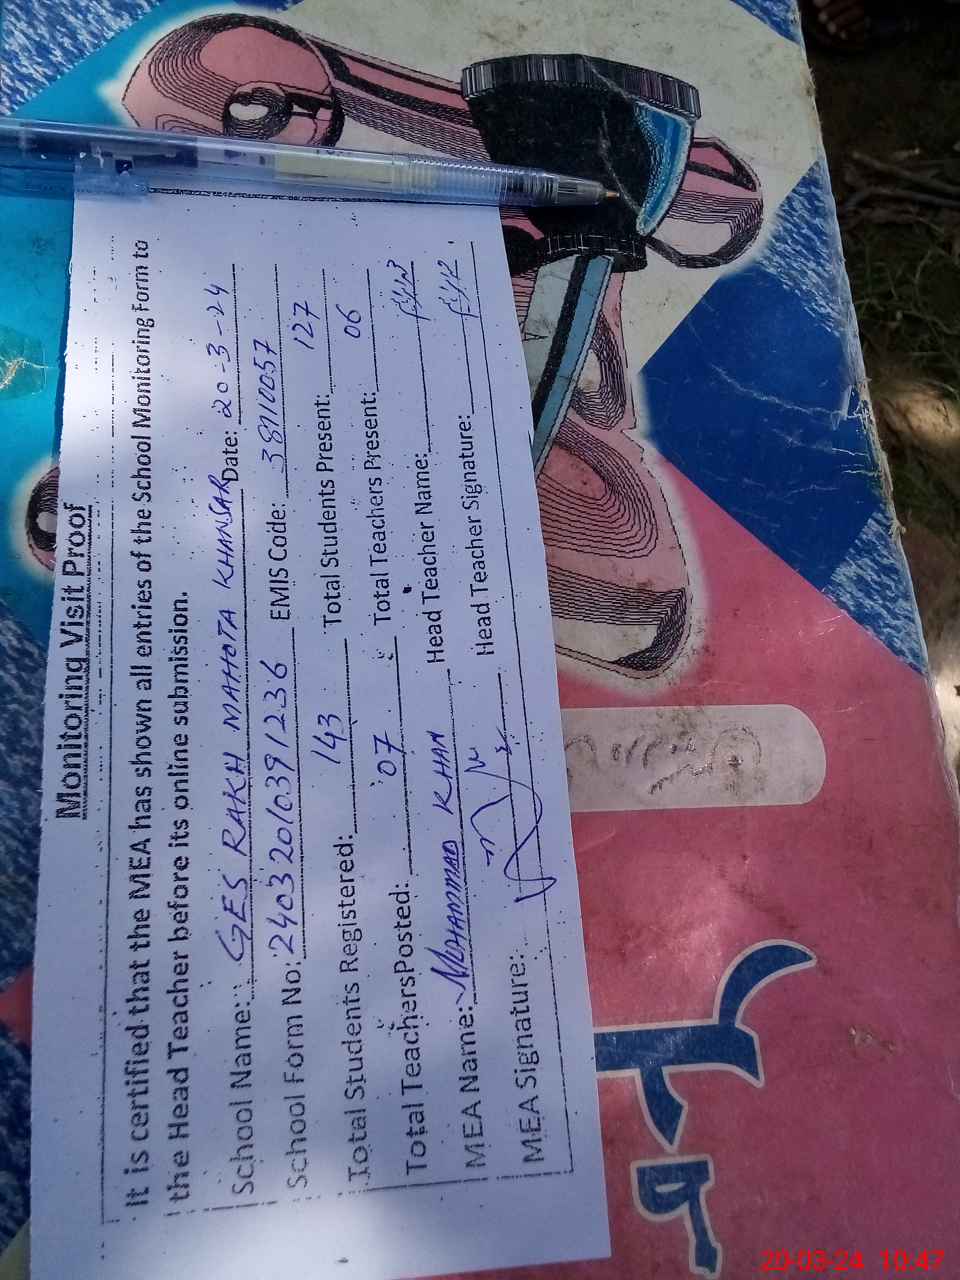 Monitoring Visit Proof
It is certified that the MEA has shown all entries of the School Monitoring Form to
the Head Teacher before its online submission.
School Name: GES RAKH MAHOTA KHANSAR Date: 20-3-24
School Form No: 24032010391236 EMIS Code: 38110057
Total Students Registered: 143 Total Students Present: 127
Total Teachers Posted: 07 Total Teachers Present: 06
MEA Name: MUHAMMAD KHAN Head Teacher Name:
MEA Signature: Head Teacher Signature:
20-03-24 10:47